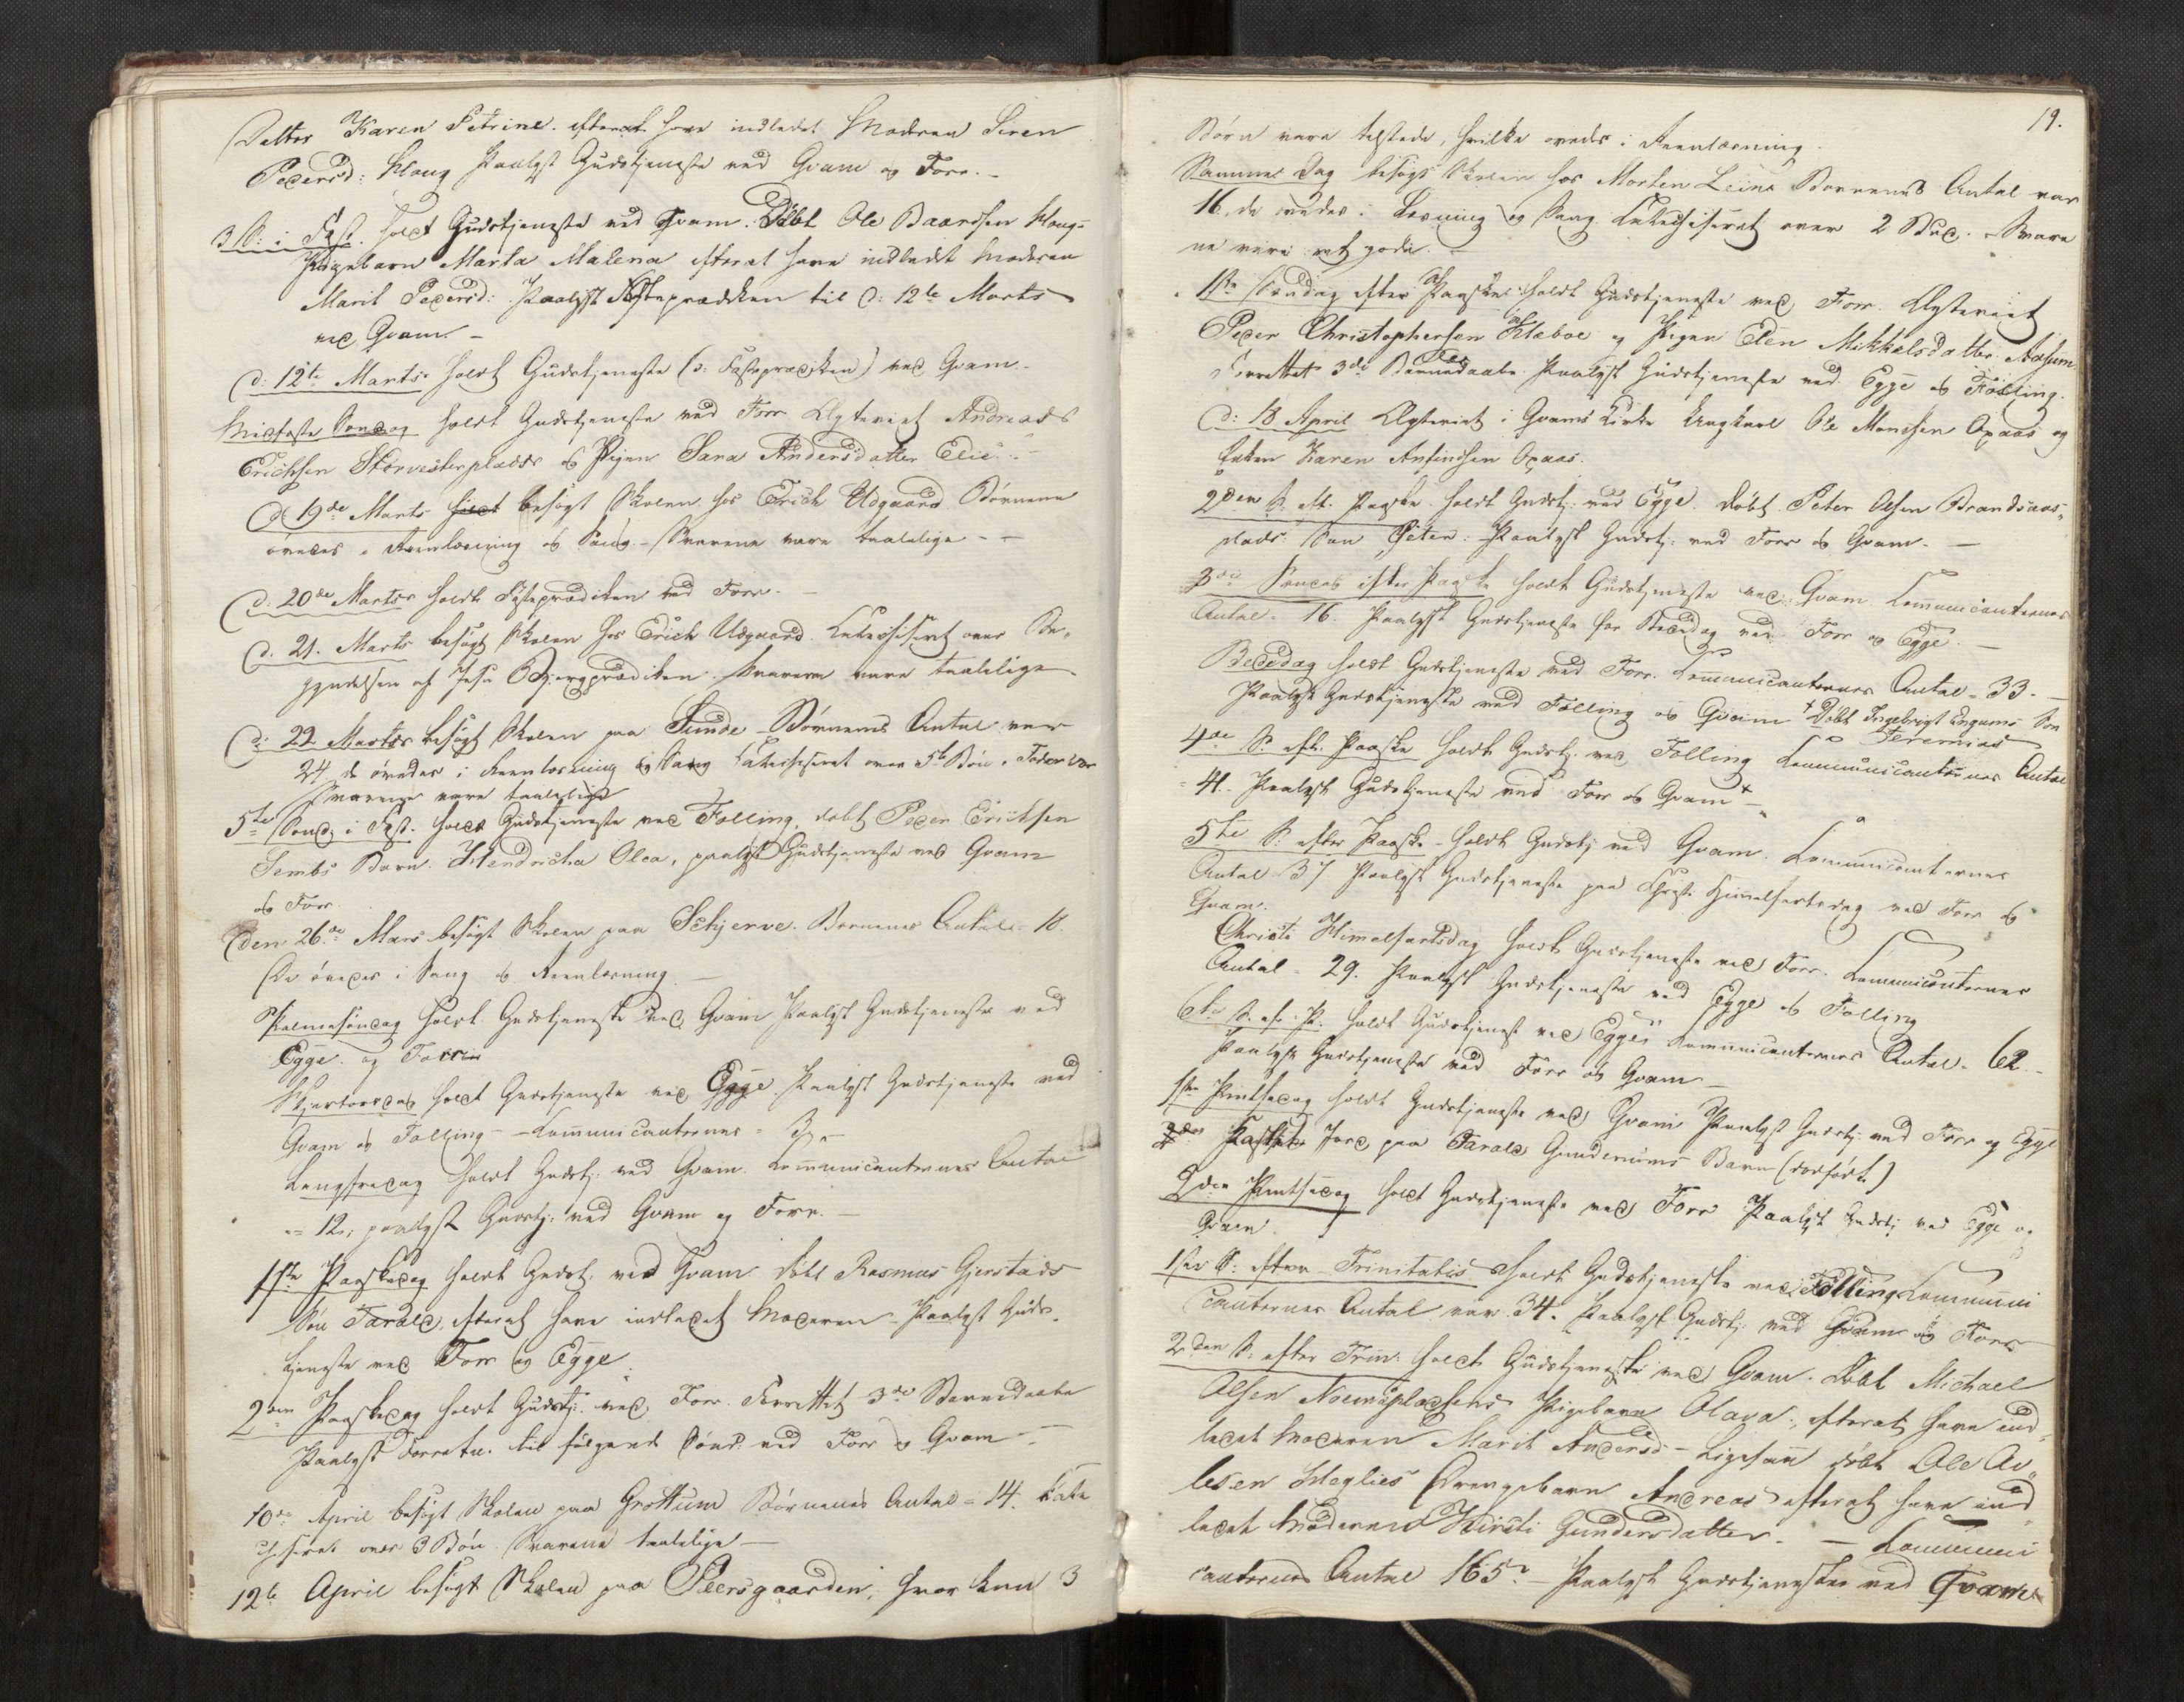 Datter Karen Petrine. efterat have indledet Moderen Siren
Pedersd: Haug Paalyst Gudstjeneste ved Qvam og Forr. –
3 S: i Fast. holdt Gudstjeneste ved Qvam. Døbt Ole Baardsen Haug=
Pigebarn Marta Malena efterat have indledet Moderen
Marit Pedersd: Paalyst Fasteprædiken til d: 12te Marts
ved Qvam. –
d: 12te Marts holdt Gudstjeneste (o: Fasteprædiken) ved Qvam –
Midfaste Søndag holdt Gudstjeneste ved Forr Ægteviet Andreas
Erichsen Størvesterplads & Pigen Sara Andersdatter Elie –
d: 19de Marts holdt besøgt Skolen hos Erich Udgaard Børnene
øvedes i Reenlæsning & Sang. – Svarene vare taalelige – –
d. 20de Marts holdt Fasteprædiken ved Forr. –
d. 21. Marts besøgt Skolen hos Erich Udgaard. Catechiseret over Be=
gyndelsen af Jesu Bjergprædiken. Svarene vare taalelige
d: 22 Marts besøgt Skolen paa Sunde – Børnenes Antal var
24 de øvedes i Reenlæsning og Sang Catechiseret over 5te Bøn i Fader vor
Svarene vare taalelige
5te Sønd: i Fast. holdt Gudstjeneste ved Følling, døbt Peder Erichsen
Sembs Barn. Hendricha Olea, paalyst Gudstjeneste ved Qvam
& Forr.
den 26de Mars besøgt Skolen paa Schjerve. Børnenes Antal = 18.
De øvedes i Sang & Reenlæsning –
Palmesøndag holdt Gudstjeneste ved Qvam Paalyst Gudstjeneste ved
Egge og Forr
Skjertorsdag holdt Gudstjeneste ved Egge. Paalyst Gudstjeneste ved
Qvam & Følling – – Communicanternes = 3 –
Langfredag holdt Gudstj: ved Qvam. Communicanternes Antal
= 12, paalyst Gudstj: ved Qvam og Forr. –
1ste Paaskedag holdt Gudstj. ved Qvam døbt Rasmus Gjerstads
Søn Tarald, efterat have indledet Moderen – Paalyst Guds=
tjeneste ved Forr og Egge.
2den Paaskedag holdt Gudstj: ved Forr. Forrettet 3de Barnedaabe
Paalyst Forretn. til følgende Sønd. ved Forr og Qvam –
10de April besøgt Skolen paa Grøttum Børnenes Antal = 14. Cate
chiseret over 3 Bøn. Svarene taalelige –
12te April besøgt Skolen paa Peersgaarden, hvor kun 3
19.
Børn vare tilstede, hvilke øvedes i Reenlæsning.
Sammes Dag besøgt Skolen hos Morten Leins Børnenes Antal var
16, de øvedes i Læsning og Sang Catechiseret over 2 Bud. – Svare
ne vare ret gode. –
1ste Søndag efter Paaske holdt Gudstjeneste ved Forr. Ægteviet
Peder Christophersen Klæboe og Pigen Elen Mikkelsdatter Aasum
Forrettet 3de Barnedaabe Paalyst Gudstjeneste ved Egge & Følling.
d: 18 April Ægteviet i Qvams Kirke Ungkarl Ole Monssen Opaas og
Enken Karen Anfindsen Opaas.
2den S. eft. Paaske holdt Gudstj: ved Egge. døbt Peter Olsen Brandsaas=
plads Søn Peter: – Paalyst Gudstj: ved Forr & Qvam. –
3die Søndag efter Paaske holdt Gudstjeneste ved Qvam Communicanternes
Antal = 16. Paalyst Gudstjeneste for Bededag ved Forr og Egge –
Bededag holdt Gudstjeneste ved Forr. Communicanternes Antal = 33. –
Paalyst Gudstjeneste ved Følling og Qvam + Døbt Ingebrigt Engums Søn
Jeremias
4de S. eft. Paaske holdt Gudstj: ved Følling Communicanternes Antal
= 41. Paalyst Gudstjeneste ved Forr & Qvam + –
5te S. efter Paaske – holdt Gudstj ved Qvam. Communicanternes
Antal 37 Paalyst Gudstjeneste paa Christi Himmelfartsdag ved Forr &
Qvam.
Christi Himmelfartsdag holdt Gudstjeneste ved Forr. Communicanternes
Antal = 29. Paalyst Gudstjeneste ved Egge & Følling
6te S. ef. P. holdt Gudstjenest ved Egge Communicanternes Antal = 62 –
Paalyst Gudstjeneste ved Forr & Qvam –
1ste Pintsedag holdt Gudstjeneste ved Qvam Paalyst Gudstj: ved Forr og Egge
Kastet Jord paa Tarald Gunderums Barn (dødfødt)
2den Pintsedag holdt Gudstjeneste ved Forr Paalyst Gudstj ved Egge og
Qvam.
1ste S: efter Trinitatis holdt Gudstjeneste ved Følling Communi
canternes Antal var 34. Paalyst Gudstj: ved Qvam og Forr
2den S: efter Trin: holdt Gudstjeneste ved Qvam. Døbt Michael
Olsen Pigebarn Olava, efterat have ind=
ledet Moderen Marit Andersd – Ligesaa døbt Ole
Drengebarn Andreas efterat have ind
ledet Moderen Kirsti Gundersdatter. – Communi
canternes Antal 165 – Paalyst Gudstjeneste ved Qvam